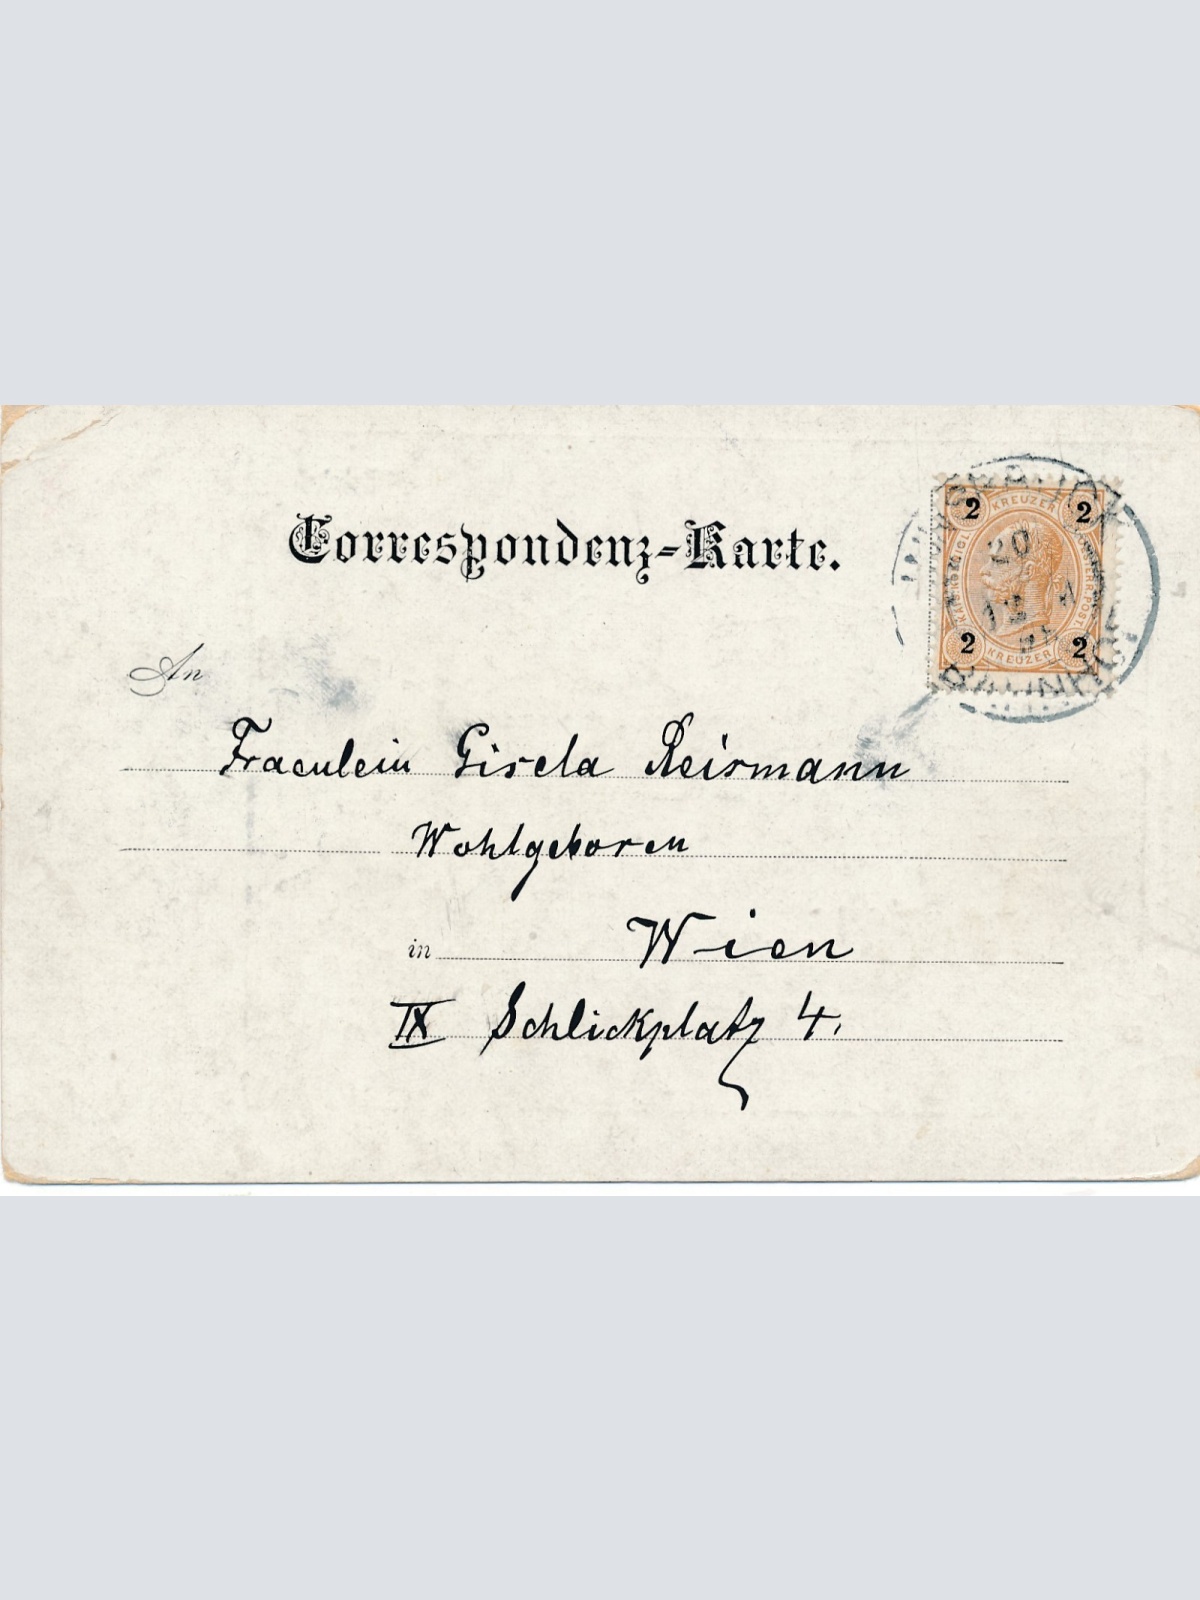 Correspondenz-Karte.
2 KREUZER 2
KAIS. KÖNIGL. ÖSTERR. POST
2 KREUZER 2
20
12
An
Fraeulein Gisela Reismann
Wohlgeboren
in Wien
IX Schlickplatz 4.